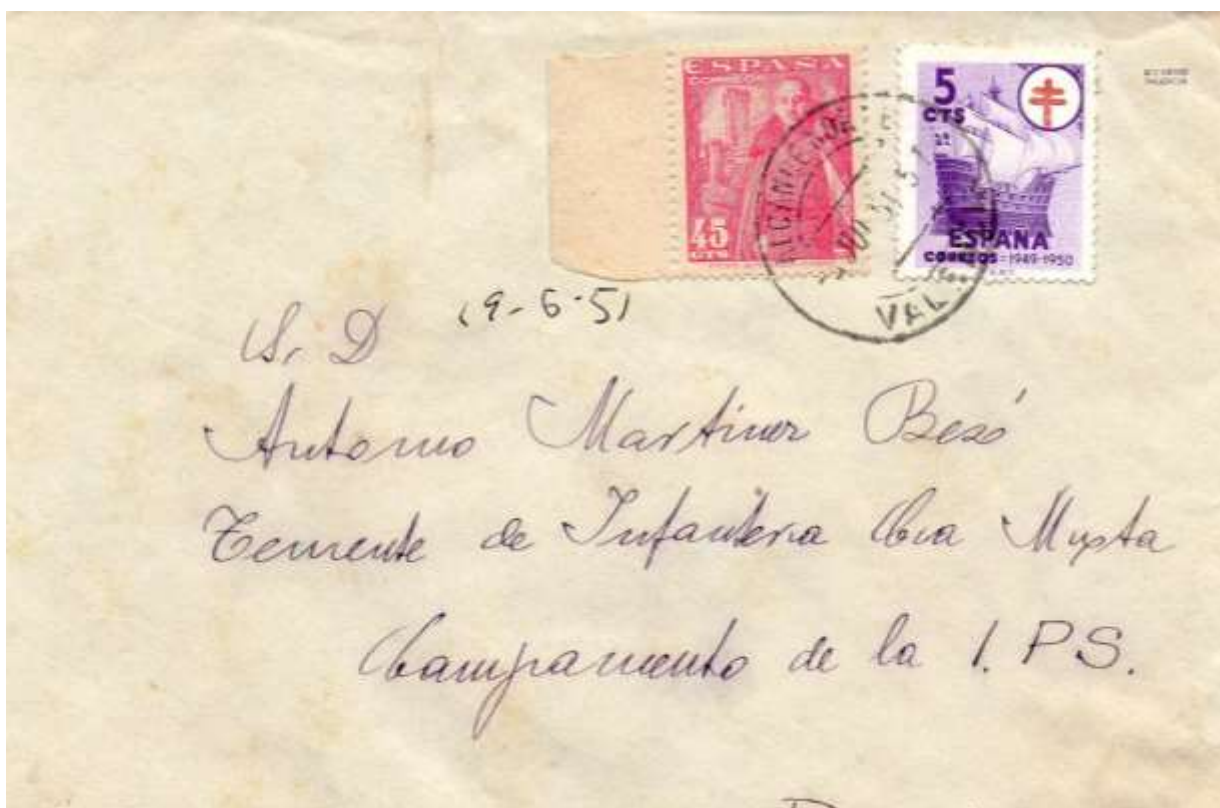 ESPAÑA
45
CTS
5
CTS
ESPAÑA
CORREOS = 1949-1950
VAL
19-6-51
Sr D
Antonio Martinez Besó
Teniente de Infanteria Cia Mixta
Campamento de la I.P.S.